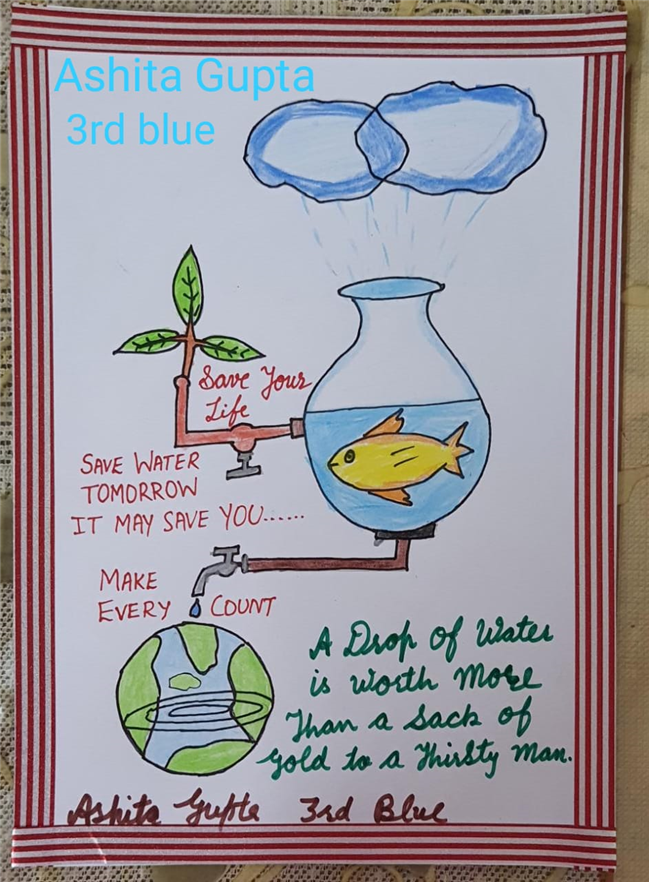 Ashita Gupta
3rd blue
Save Your
Life
SAVE WATER
TOMORROW
IT MAY SAVE YOU......
MAKE
EVERY COUNT
A Drop of Water
is Worth More
Than a Sack of
Gold to a Thirsty Man.
Ashita Gupta 3rd Blue